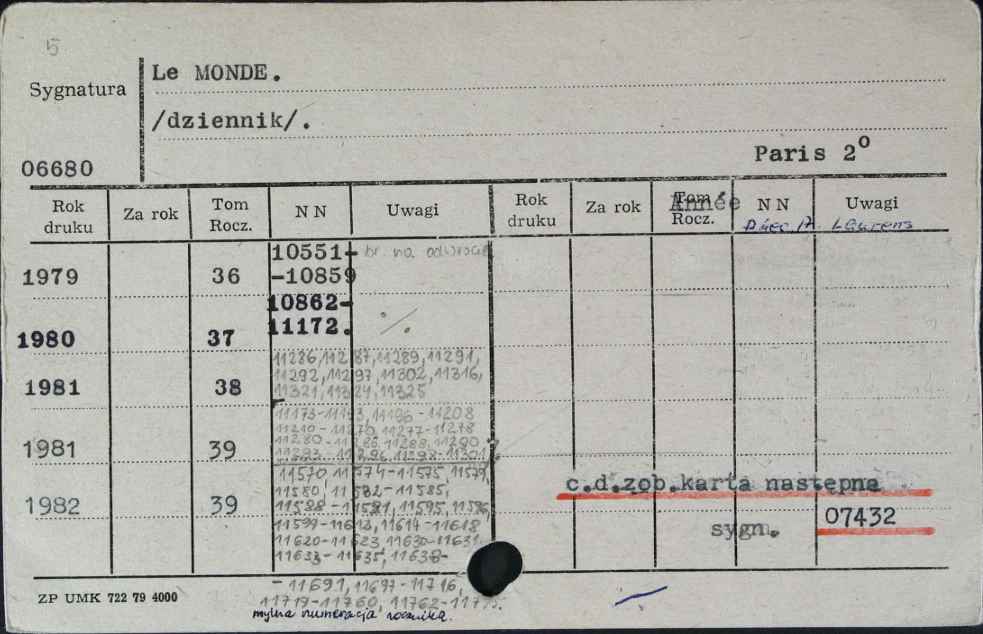 5
Sygnatura
Le MONDE.
/dziennik/.
06680
Paris 2º
Rok druku Za rok Tom Rocz. NN Uwagi Rok druku Za rok Tom Rocz. Année NN Uwagi
Laurens
1979 36 10551- br. na odwrocie
-10859
10862-
1980 37 11172. ./.
11286, 11287, 11289, 11291,
1981 38 11292, 11297, 11302, 11316,
11321, 11324, 11325
11173-11193, 11196-11208
11210-11270, 11277-11278
1981 39 11280-11286, 11288, 11290
11293, 11296, 11298-11301
11570, 11574-11575, 11579,
c.d.zob.karta następna
1982 39 11580, 11582-11585,
11588-11591, 11595, 11596,
07432
11599-11612, 11614-11618
sygn.
11620-11623, 11630-11631
11633-11635, 11638-
-11691, 11697-11716,
ZP UMK 722 79 4000
11719-11760,
mylna numeracja rocznika.